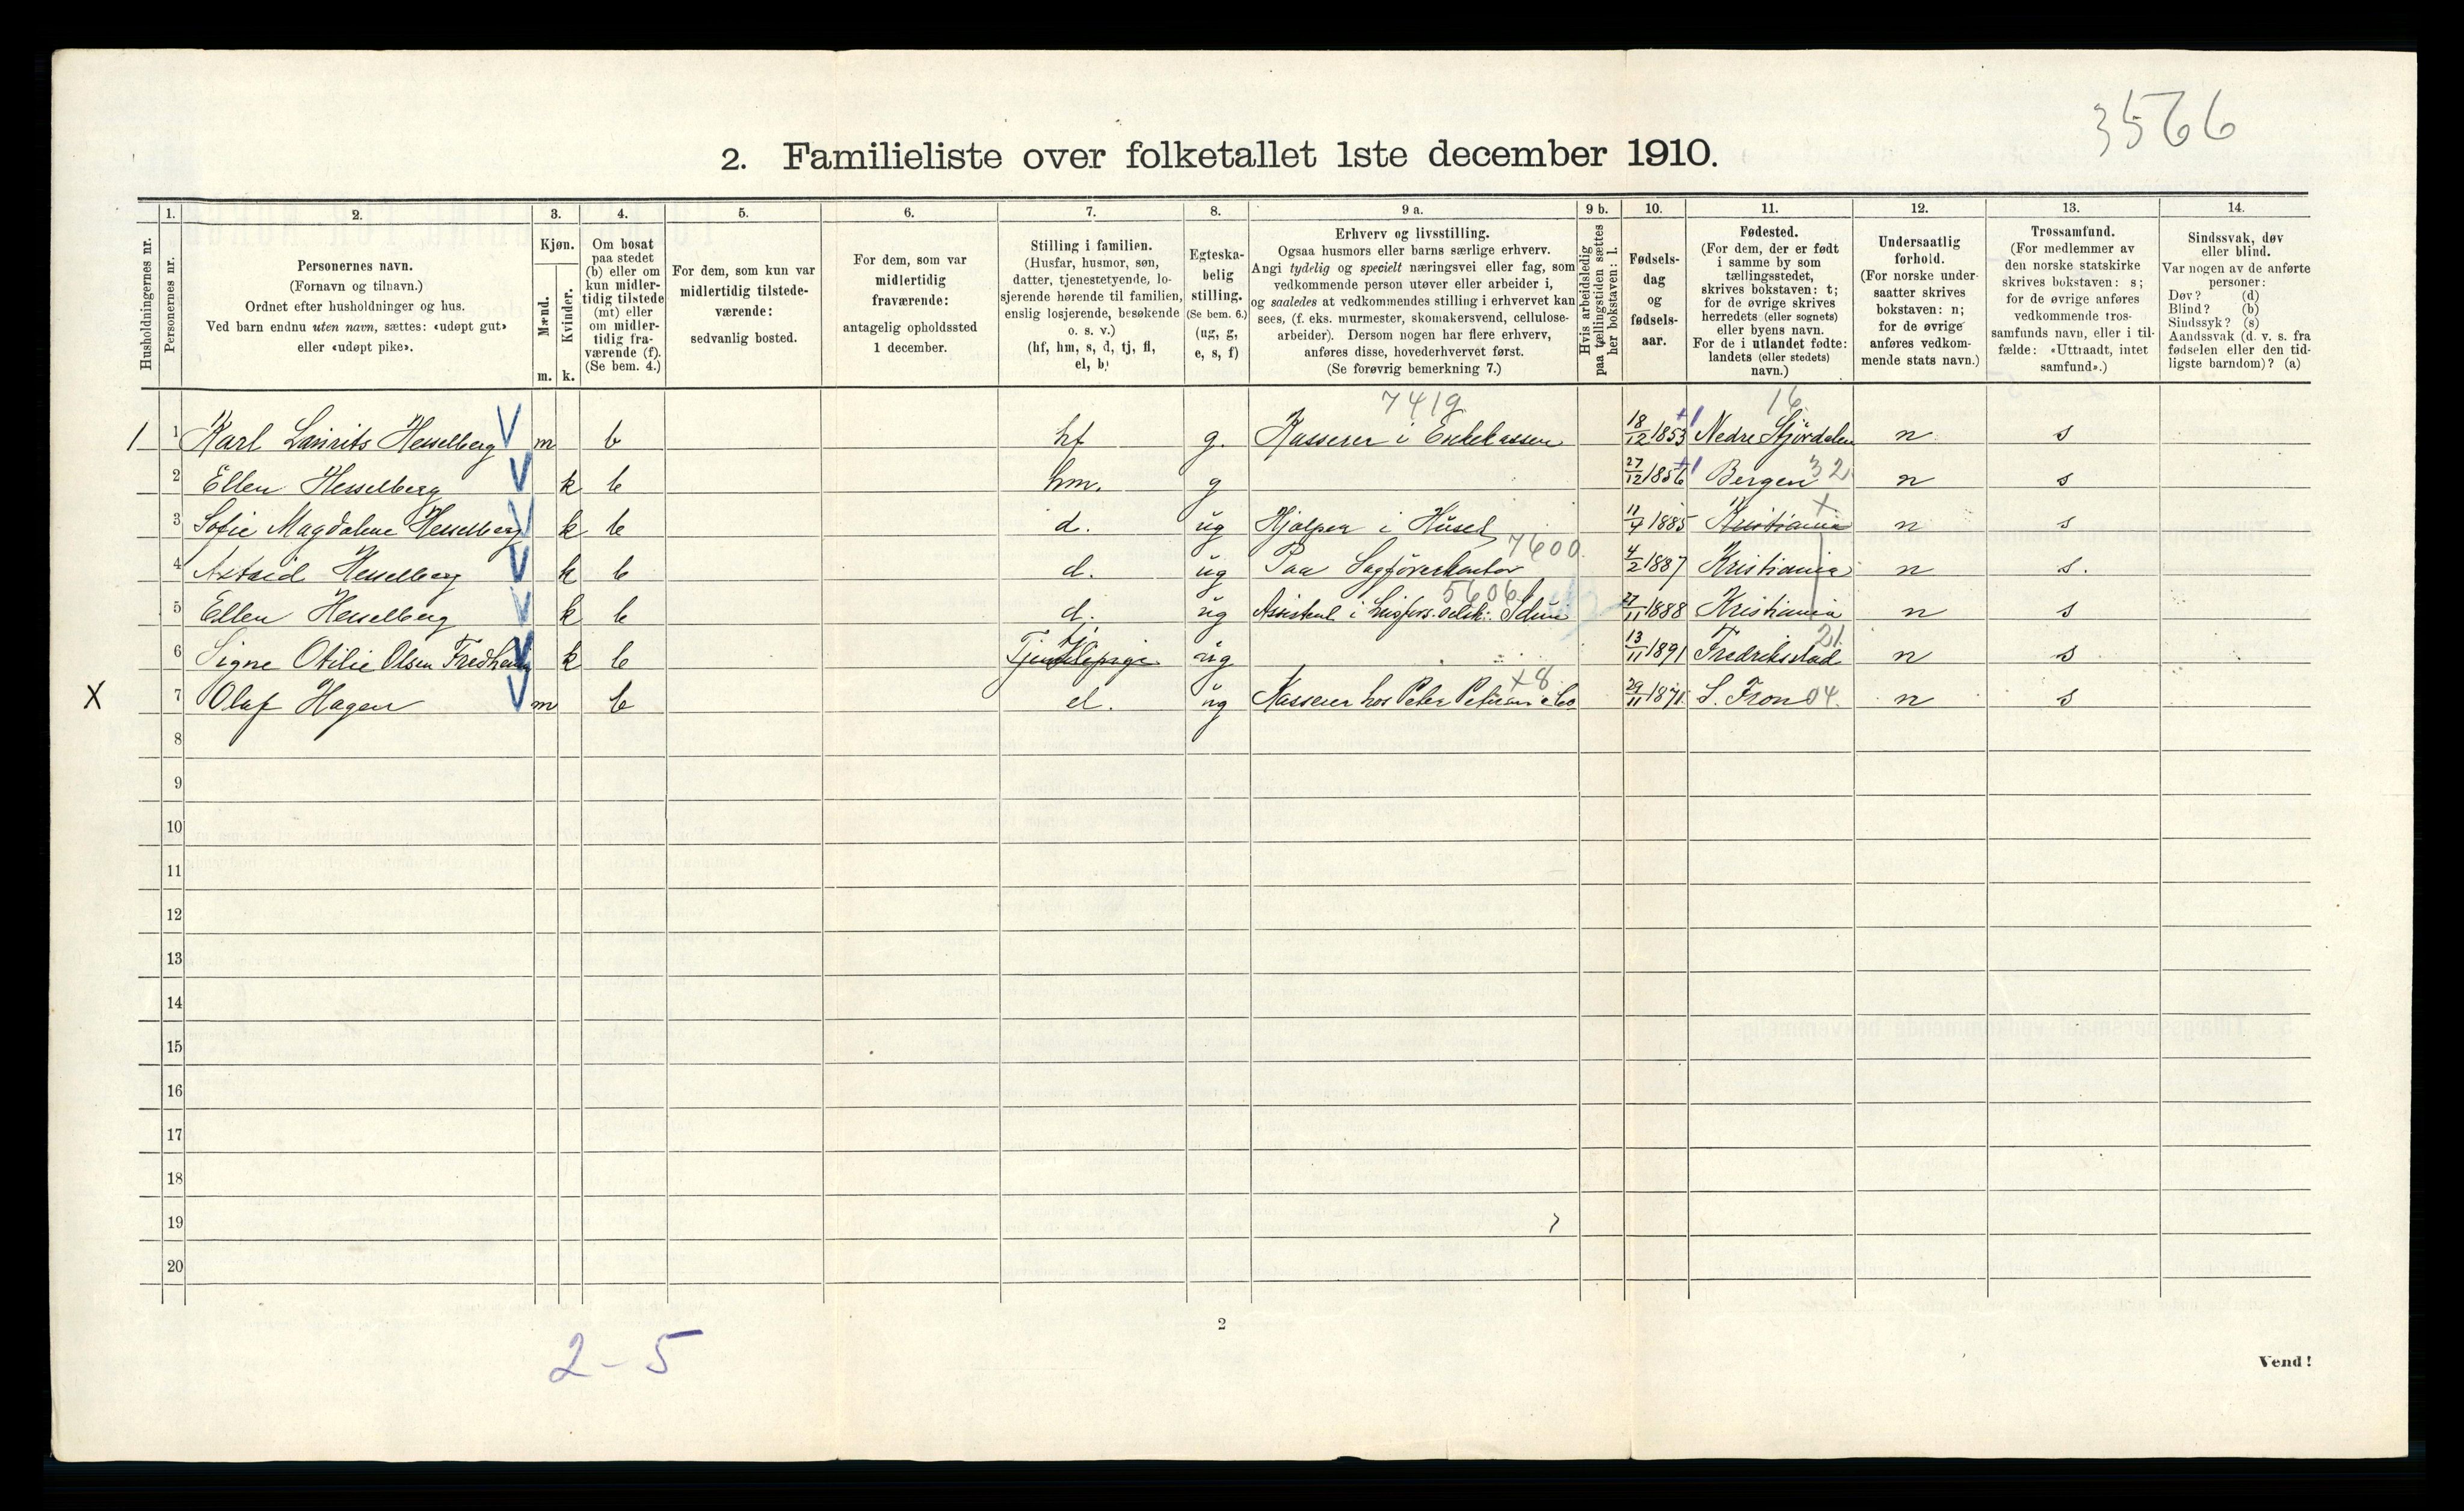 3566
2. Familieliste over folketallet 1ste december 1910.
Husholdningernes nr.
1.
Personernes nr.
2.
Personernes navn.
(Fornavn og tilnavn.)
Ordnet efter husholdninger og hus.
Ved barn endnu uten navn, sættes: «udøpt gut»
eller «udøpt pike».
3.
Kjøn.
Mænd.
Kvinder.
m. k.
4.
Om bosat
paa stedet
(b) eller om
kun midler-
tidig tilstede
(mt) eller
om midler-
tidig fra-
værende (f).
(Se bem. 4.)
5.
For dem, som kun var
midlertidig tilstede-
værende:
sedvanlig bosted.
6.
For dem, som var
midlertidig
fraværende:
antagelig opholdssted
1 december.
7.
Stilling i familien.
(Husfar, husmor, søn,
datter, tjenestetyende, lo-
sjerende hørende til familien,
enslig losjerende, besøkende
o. s. v.)
(hf, hm, s, d, tj, fl,
el, b)
8.
Egteska-
belig
stilling.
(Se bem. 6.)
(ug, g,
e, s, f)
9 a.
Erhverv og livsstilling.
Ogsaa husmors eller barns særlige erhverv.
Angi tydelig og specielt næringsvei eller fag, som
vedkommende person utøver eller arbeider i,
og saaledes at vedkommendes stilling i erhvervet kan
sees, (f. eks. murmester, skomakersvend, cellulose-
arbeider). Dersom nogen har flere erhverv,
anføres disse, hovederhvervet først.
(Se forøvrig bemerkning 7.)
9 b.
Hvis arbeidsledig
paa tællingstiden sættes
her bokstaven: l.
10.
Fødsels-
dag
og
fødsels-
aar.
11.
Fødested.
(For dem, der er født
i samme by som
tællingsstedet,
skrives bokstaven: t;
for de øvrige skrives
herredets (eller sognets)
eller byens navn.
For de i utlandet fødte:
landets (eller stedets)
navn.)
12.
Undersaatlig
forhold.
(For norske under-
saatter skrives
bokstaven: n;
for de øvrige
anføres vedkom-
mende stats navn.)
13.
Trossamfund.
(For medlemmer av
den norske statskirke
skrives bokstaven: s;
for de øvrige anføres
vedkommende tros-
samfunds navn, eller i til-
fælde: «Uttraadt, intet
samfund».)
14.
Sindssvak, døv
eller blind.
Var nogen av de anførte
personer:
Døv? (d)
Blind? (b)
Sindssyk? (s)
Aandssvak (d. v. s. fra
fødselen eller den tid-
ligste barndom)? (a)
7419 16
1 1 Karl Lauritz Hesselberg V m b hf g. Kasserer i Enkekassen 18/12 1853 Nedre Stjördalen n s
2 Ellen Hesselberg V k b hm. g 27/12 1856 Bergen 32 n s
3 Sofie Magdalene Hesselberg V k b d. ug Hjælper i Huset 11/4 1885 Kristiania n s
7600
4 Astrid Hesselberg V k b d. ug Paa Sagförerkontor 4/2 1887 Kristiania n s.
5606
5 Ellen Hesselberg V k b d. ug Assistent i Livsfors. selsk: Idun 27/11 1888 Kristiania n s
tj 21
6 Signe Otilie Olsen Fredheim V k b Tjenestepige ug 13/11 1891 Fredriksstad n s
+8
X 7 Olaf Hagen V m b el. ug Kasserer hos Peter Petersen & Co 29/11 1871 S. Fron 04. n s
8
9
10
11
12
13
14
15
16
17
18
19
20
2
2-5
Vend!